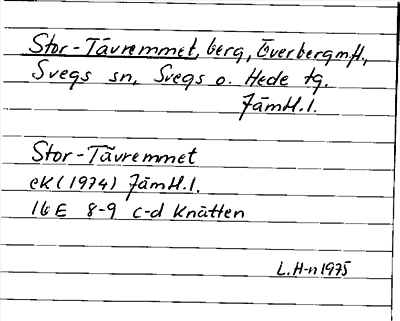 Stor-Tāvremmet, berg, Överbergm.fl.,
Svegs sn, Svegs o. Hede tg.
Jämtl.l.
Stor-Tāvremmet
eK (1974) Jämtl.l.
16E 8-9 c-d Knätten
L.H-n 1975